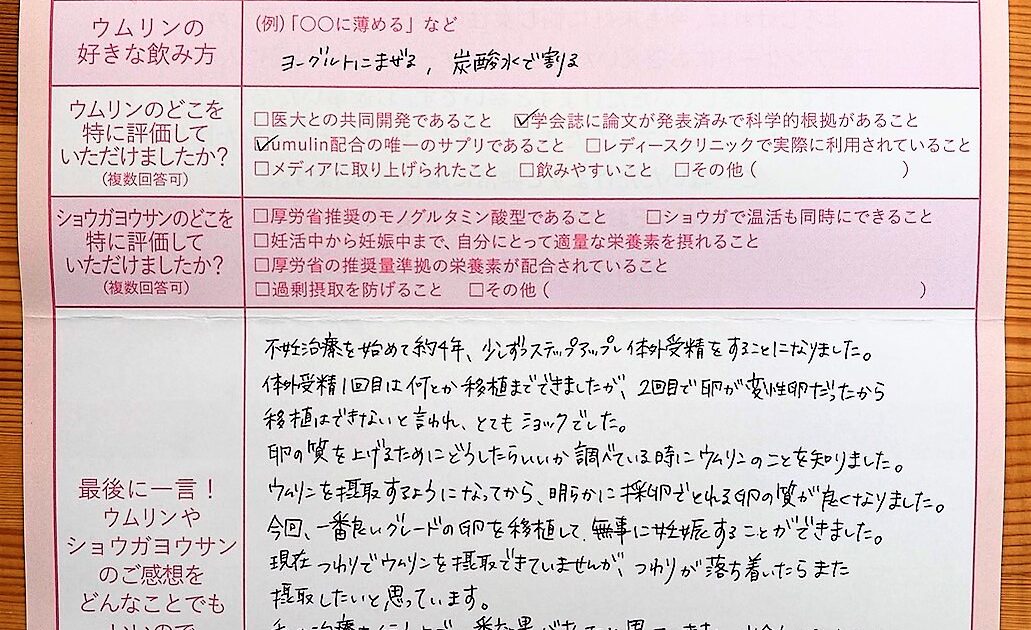 ウムリンの
好きな飲み方
(例)「〇〇に薄める」など
ヨーグルトにまぜる, 炭酸水で割る
ウムリンのどこを
特に評価して
いただけましたか?
(複数回答可)
□医大との共同開発であること ☑学会誌に論文が発表済みで科学的根拠があること
☑umulin配合の唯一のサプリであること □レディースクリニックで実際に利用されていること
□メディアに取り上げられたこと □飲みやすいこと □その他( )
ショウガヨウサンのどこを
特に評価して
いただけましたか?
(複数回答可)
□厚労省推奨のモノグルタミン酸型であること □ショウガで温活も同時にできること
□妊活中から妊娠中まで、自分にとって適量な栄養素を摂れること
□厚労省の推奨量準拠の栄養素が配合されていること
□過剰摂取を防げること □その他( )
最後に一言!
ウムリンや
ショウガヨウサン
のご感想を
どんなことでも
いいので
不妊治療を始めて約4年、少しずつステップアップし体外受精をすることになりました。
体外受精1回目は何とか移植までできましたが、2回目で卵が変性卵だったから
移植はできないと言われ、とてもショックでした。
卵の質を上げるためにどうしたらいいか調べている時にウムリンのことを知りました。
ウムリンを摂取するようになってから、明らかに採卵でとれる卵の質が良くなりました。
今回、一番良いグレードの卵を移植して、無事に妊娠することができました。
現在つわりでウムリンを摂取できていませんが、つわりが落ち着いたらまた
摂取したいと思っています。